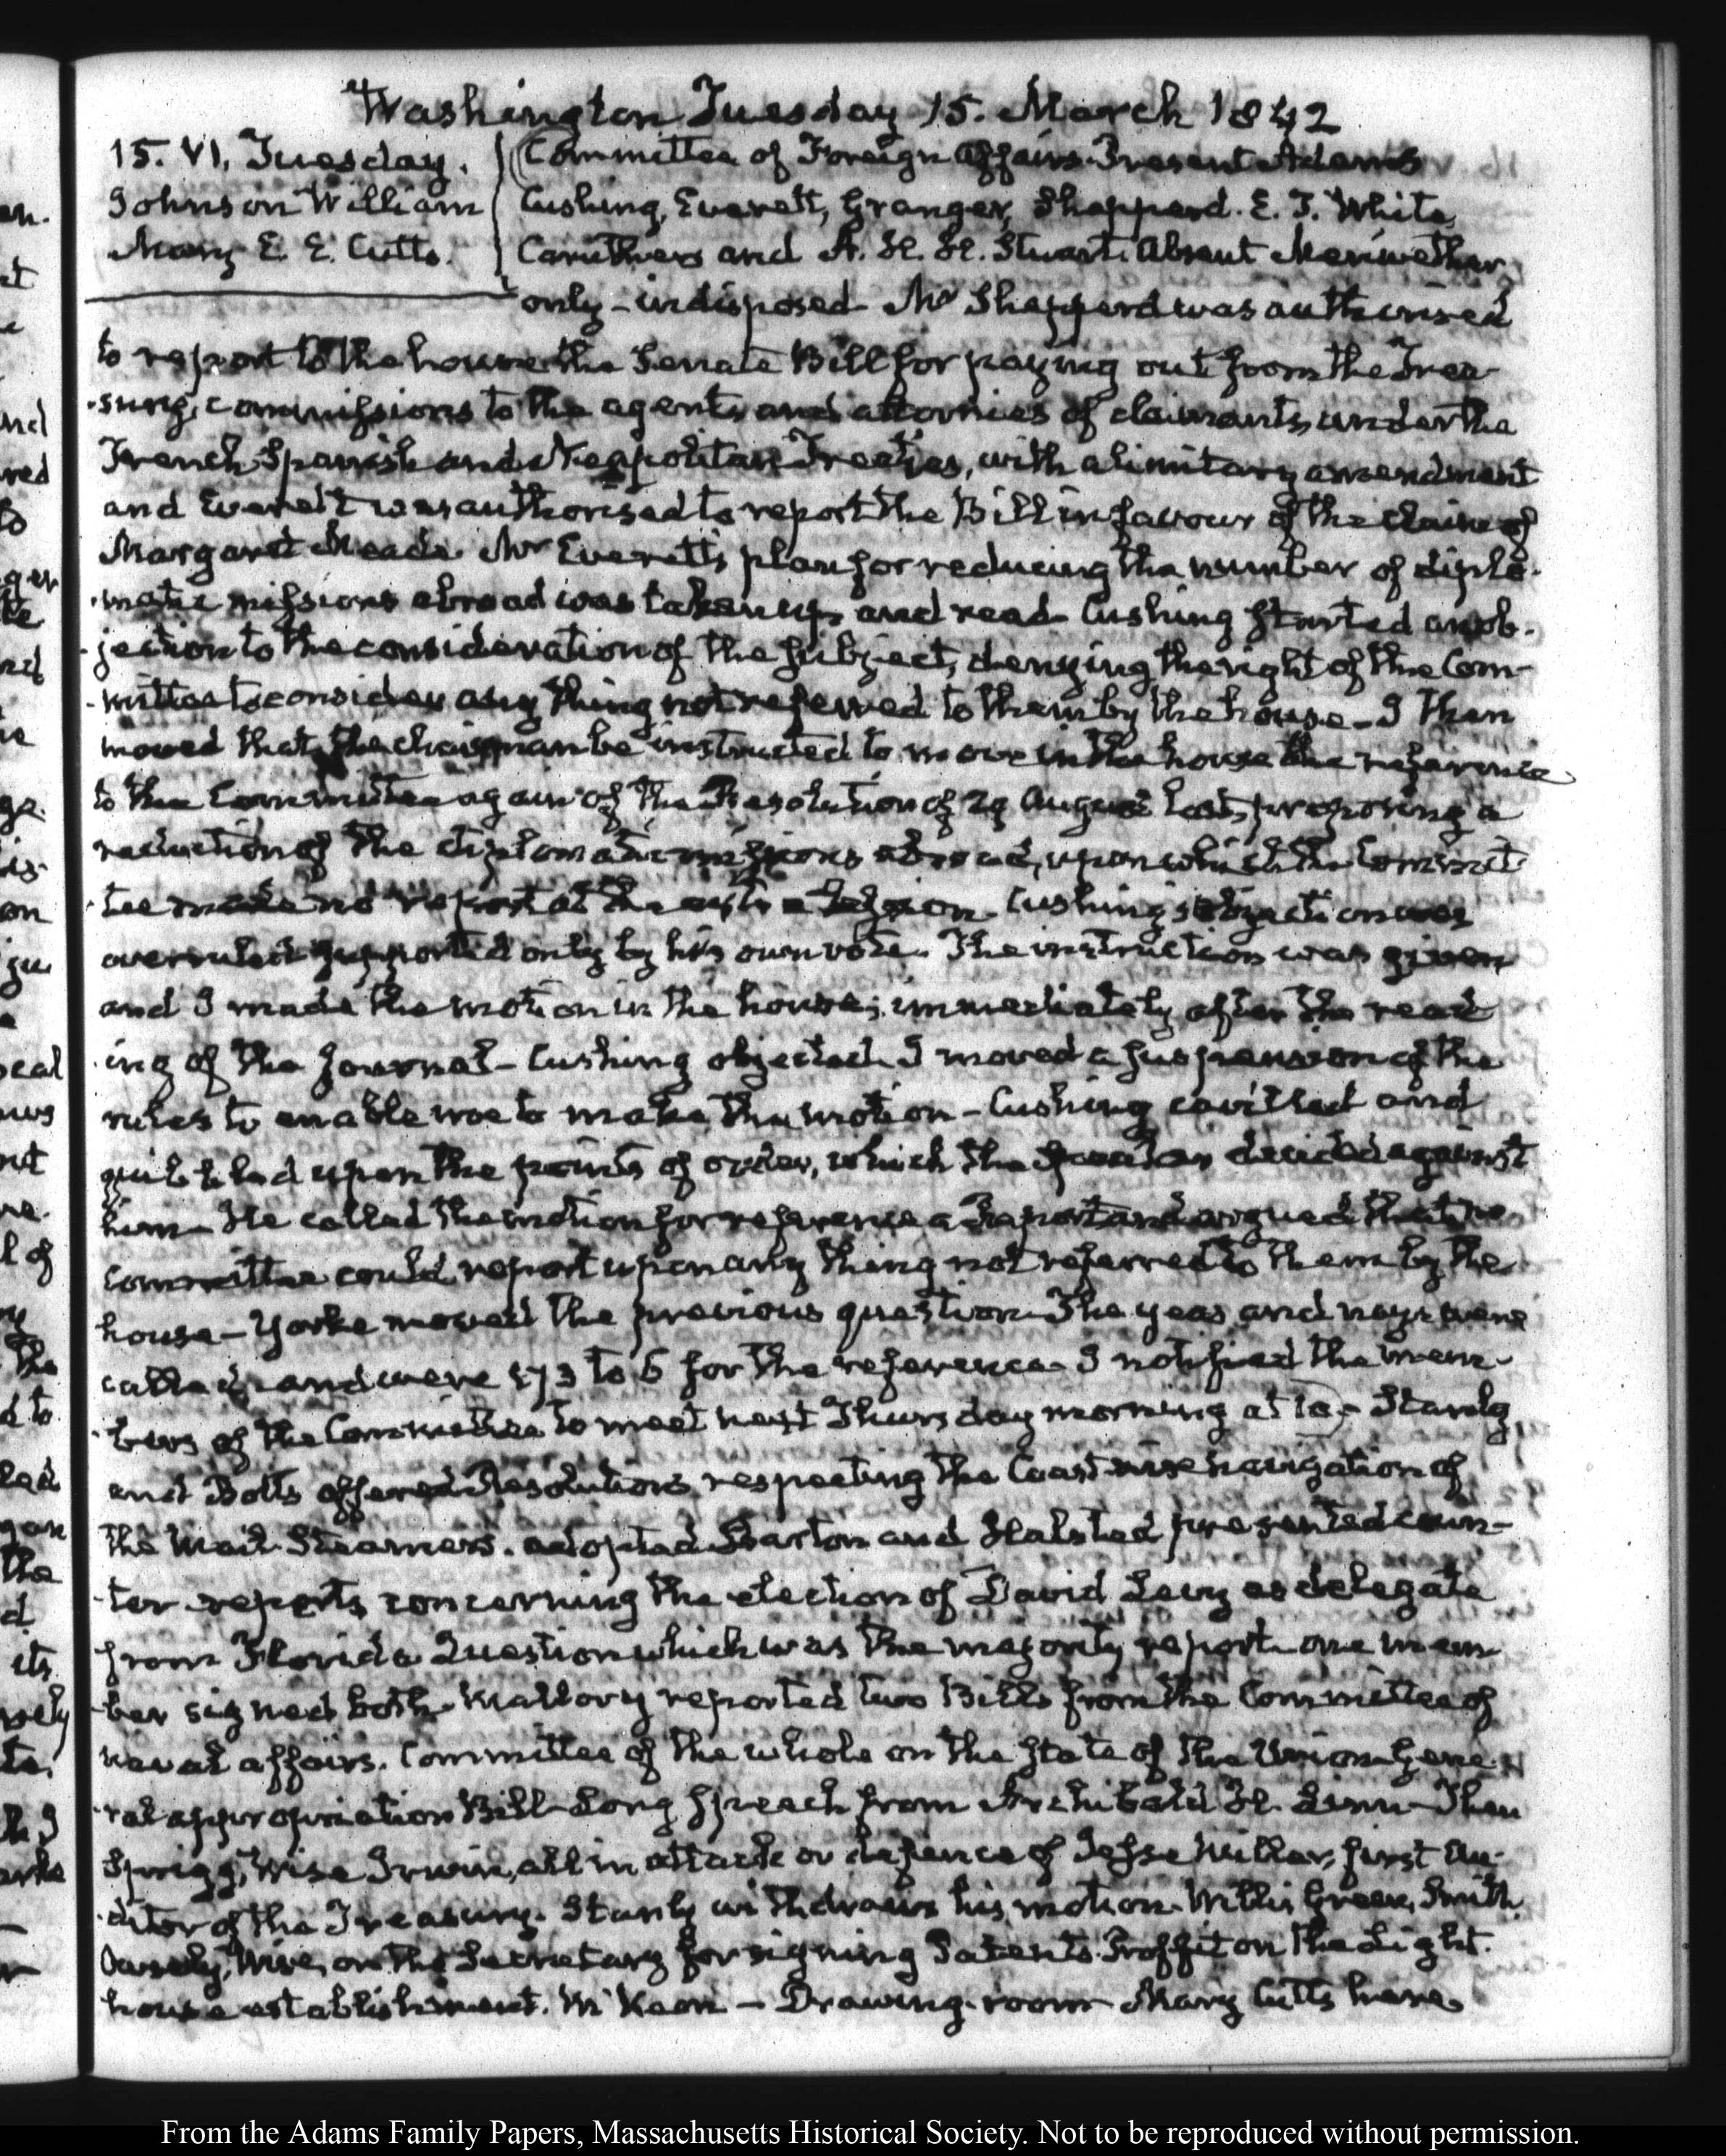 Washington Tuesday 15. March 1842
15. VI. Tuesday.
Johnson William
Mary E. E. Cutts.
Committee of Foreign Affairs. Present Adams
Cushing, Everett, Granger, Shepperd. E. J. White,
Caruthers and A. H. H. Stuart. Absent Meriwether
only – indisposed – Mr Shepperd was authorised
to report to the house the Senate Bill for paying out from the Trea-
-sury, commissions to the agents and attornies of claimants, under the
French, Spanish and Neapolitan Treaties, with a limitary amendment
and Everett was authorised to report the Bill in favour of the claim of
Margaret Meade. Mr Everett's plan for reducing the number of diplo-
-matic missions abroad was taken up, and read. Cushing started an ob-
-jection to the consideration of the subject, denying the right of the Com-
-mittee to consider any thing not referred to them by the house – I then
moved that the chairman be instructed to move in the house the reference
to the Committee again of the Resolution of 29 August last, proposing a
reduction of the diplomatic missions abroad, upon which the Commit-
-tee made no report at the extra Session. Cushing's objection was
overruled supported only by his own vote. The instruction was given
and I made the motion in the house; immediately after the read
-ing of the Journal – Cushing objected. I moved a suspension of the
rules to enable me to make the motion – Cushing cavilled and
quibbled upon the points of order, which the Speaker decided against
him – He called the motion for reference a Report and argued that no
Committee could report upon any thing not referred to them by the
house – Yorke moved the previous question. The yeas and nays were
called, and were 173 to 5 for the reference. I notified the mem-
-bers of the Committee to meet next Thursday morning at 10 – Stanly
and Botts offered Resolutions respecting the Coastwise navigation of
the Mail Steamers. adopted. Barton and Halsted presented coun-
-ter reports concerning the election of David Levy as delegate
from Florida. Question which was the majority report. one mem
-ber signed both. Mallory reported two Bills from the Committee of
naval affairs. Committee of the whole on the State of the Union. Gene
-ral appropriation Bill – Long speech from Archibald H. Linn – Then
Sprigg, Wise, Irwin, all in attack or defence of Jesse Miller, first Au-
-ditor of the Treasury. Stanly withdraws his motion. Willis Green, Smith
Ousely, Wise, on the Secretary for signing Patents. Proffit on the Light-
house establishment. McKeon – Drawing-room – Mary Cutts here.
From the Adams Family Papers, Massachusetts Historical Society. Not to be reproduced without permission.